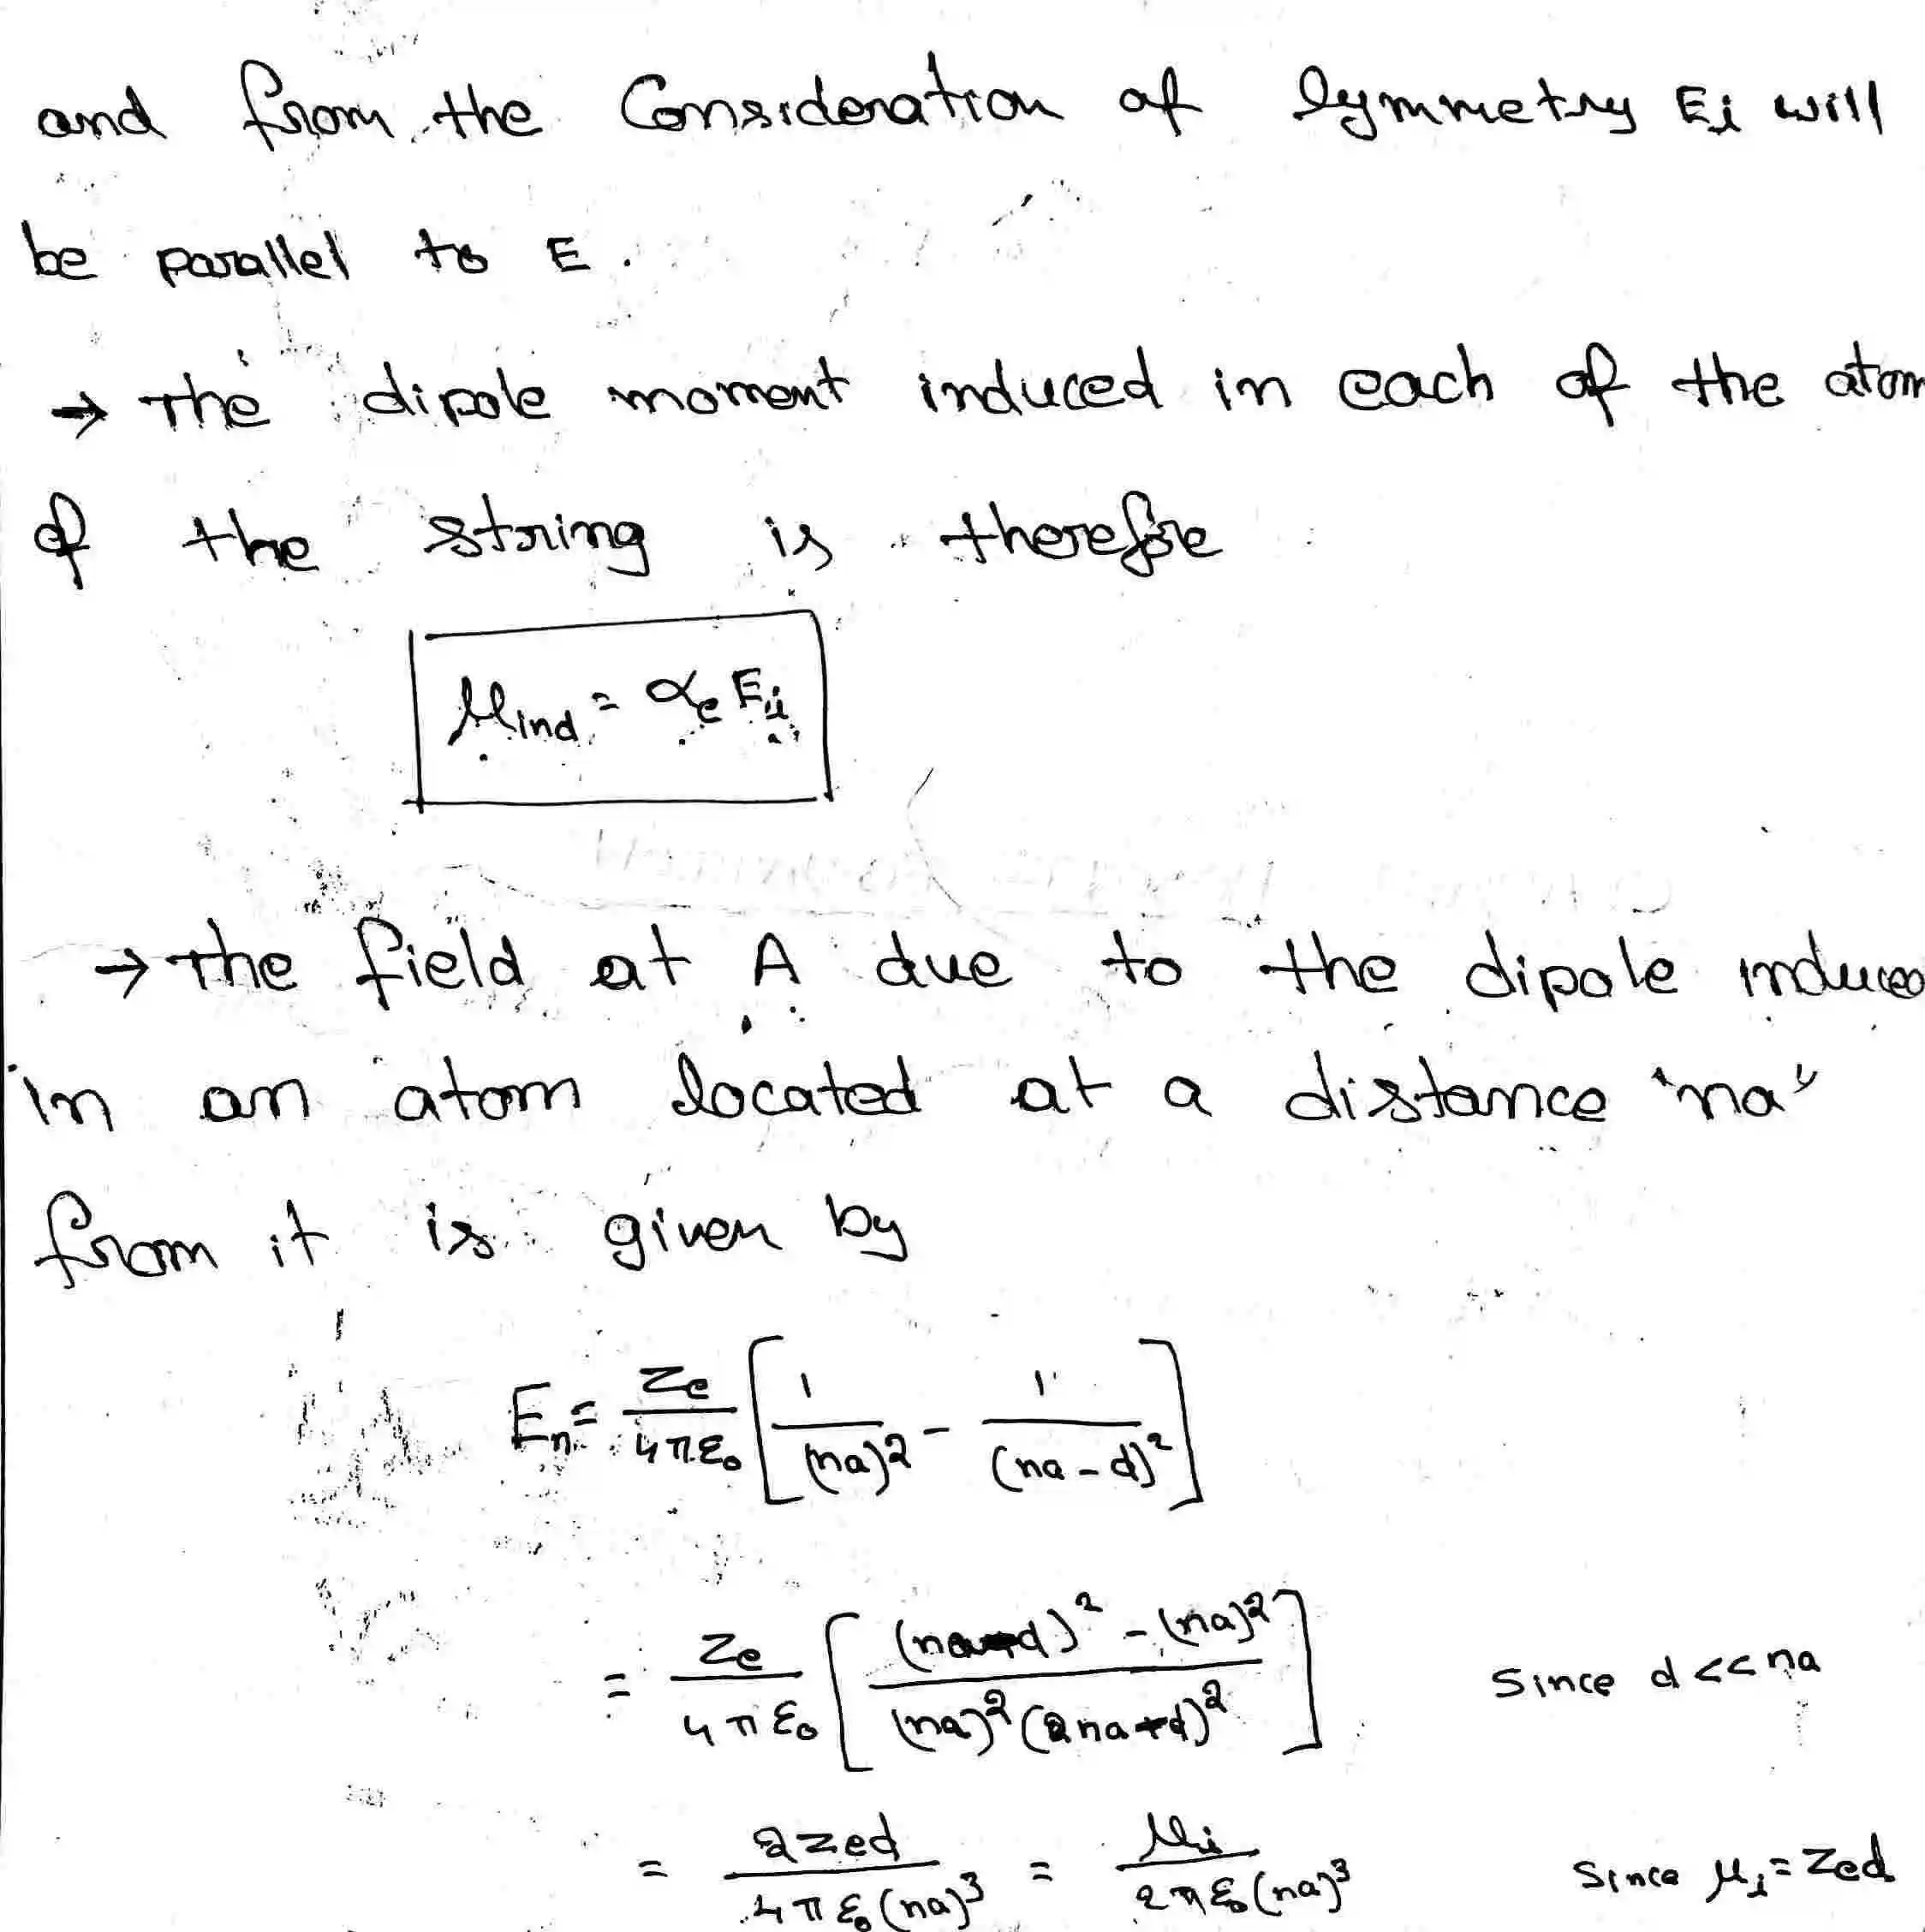 and from the Consideration of Symmetry Ei will
be parallel to E.
→ The dipole moment induced in each of the atom
of the string is therefore
μind = αe Ei
→ The field at A due to the dipole induced
in an atom located at a distance "na"
from it is given by
En = Ze/4πε₀ [1/(na)² - 1/(na-d)²]
= Ze/4πε₀ [(na+d)² - (na)² / (na)² (na+d)²] Since d << na
= 2Zed/4πε₀(na)³ = μi/2πε₀(na)³ Since μi = Zed